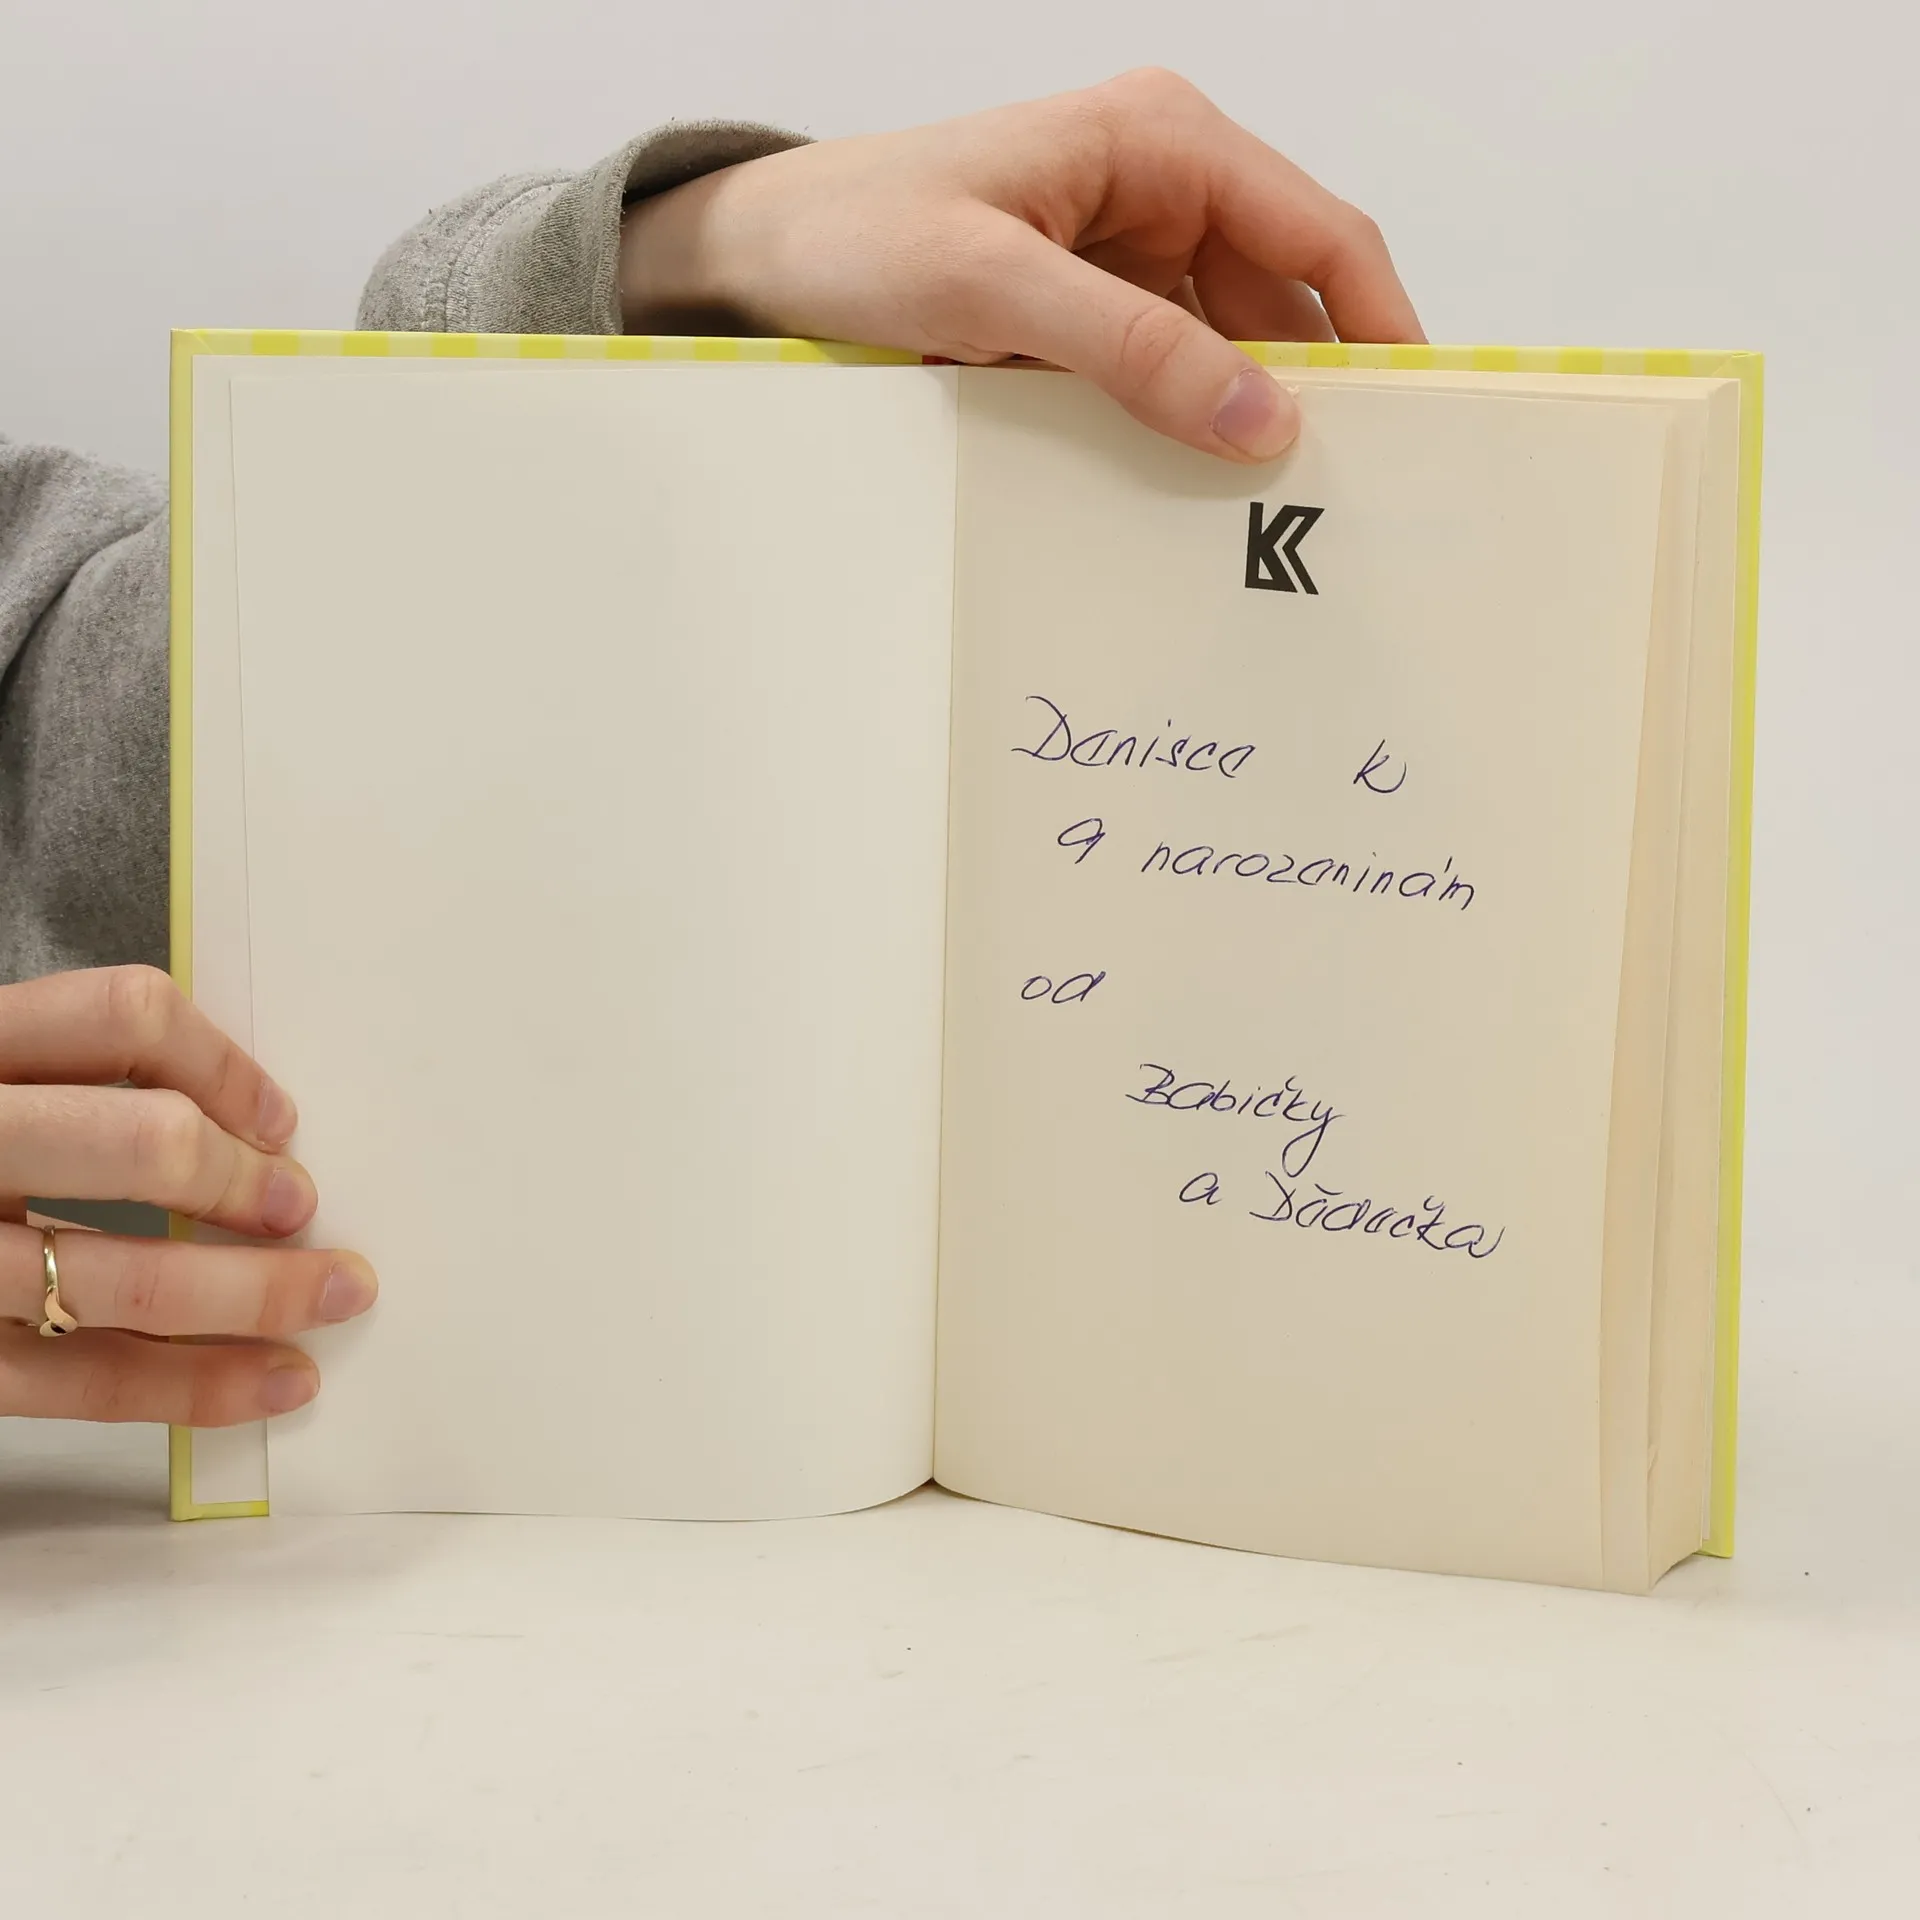 K
Danisce k
9 narozeninám
od
Babičky
a Dědečka